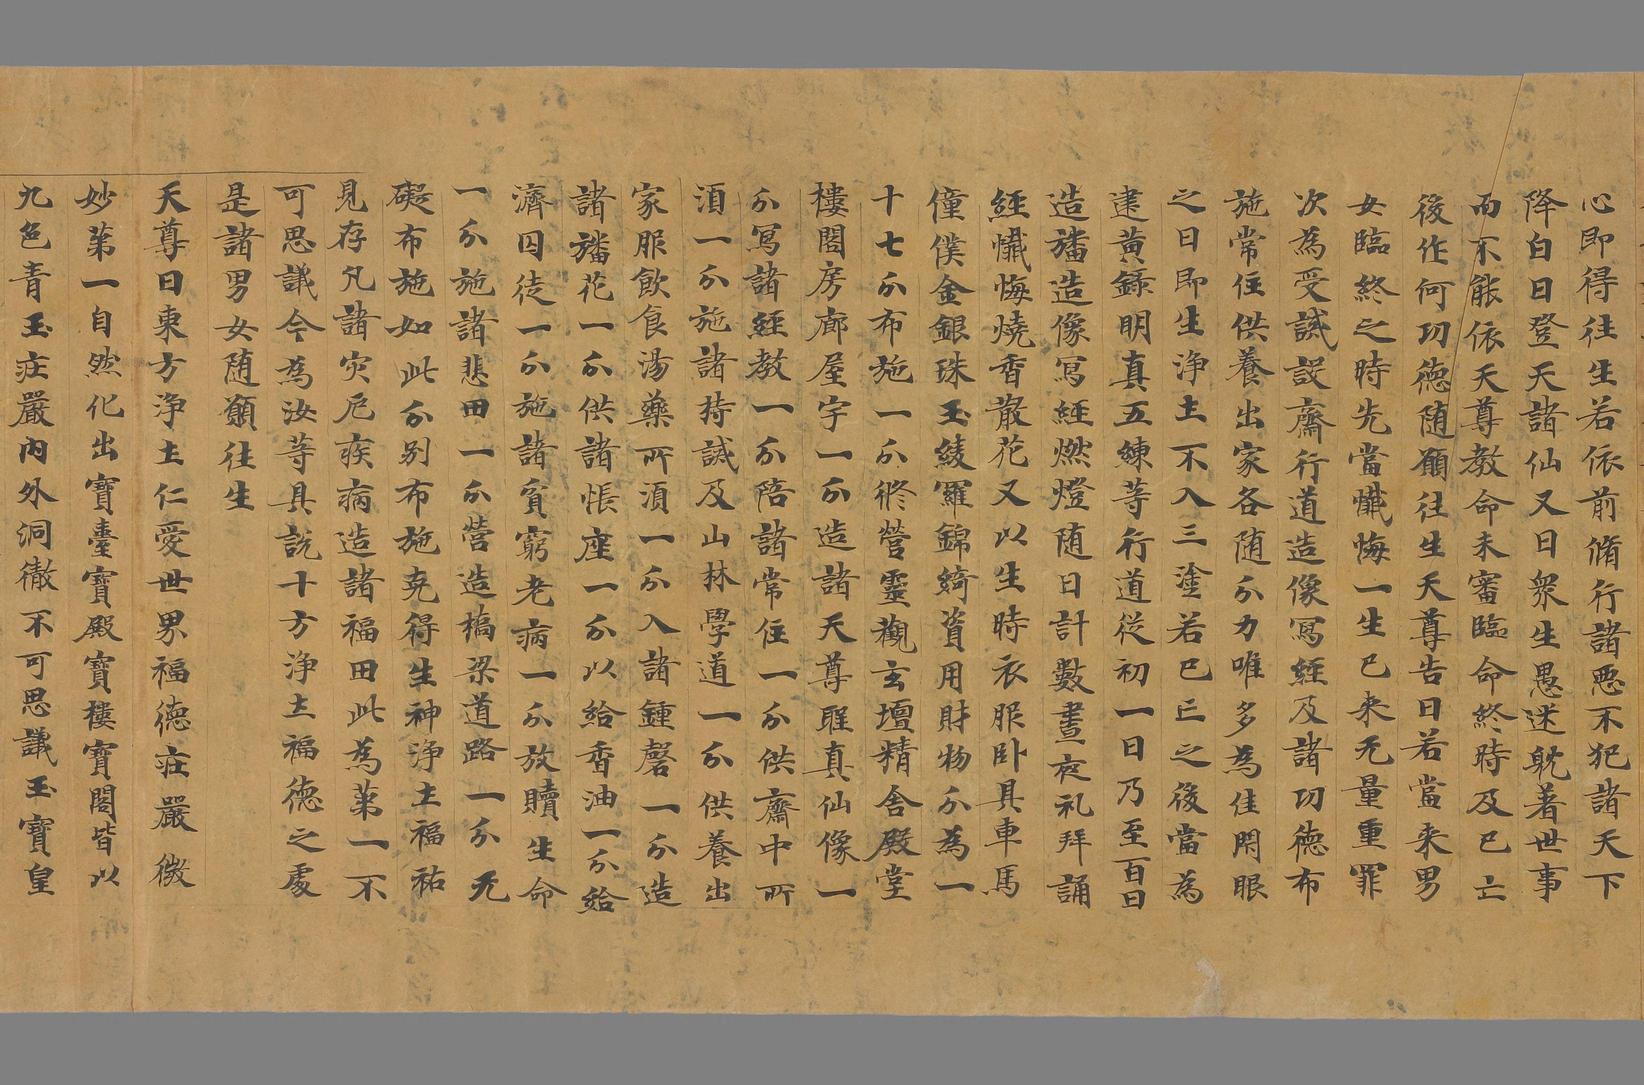 心即得往生若依前脩行諸惡不犯諸天下
降白日登天諸仙又曰衆生愚迷躭著世事
而不能依天尊教命未審臨命終時及已亡
後作何功德随願往生天尊告曰若當来男
女臨終之時先當懴悔一生已来无量重罪
次為受誡設齋行道造像寫經及諸功德布
施常住供養出家各随分力唯多為佳閇眼
之日即生浄土不入三塗若已亡之後當為
建黃籙明真五練等行道從初一日乃至百日
造旛造像寫經燃燈随日計數晝夜礼拜誦
經懴悔燒香散花又以生時衣服卧具車馬
僮僕金銀珠玉綾羅錦綺資用財物分為一
十七分布施一分修營靈觀玄壇精舍殿堂
樓閣房廊屋宇一分造諸天尊聖真仙像一
分寫諸經教一分陪諸常住一分供齋中所
須一分施諸持誡及山林學道一分供養出
家服飲食湯藥所須一分入諸鍾磬一分造
諸旛花一分供諸悵座一分以給香油一分給
濟囚徒一分施諸貧窮老病一分放贖生命
一分施諸悲田一分營造橋梁道路一分无
礙布施如此分别布施克得生神浄土福祐
見存凡諸灾厄疾病造諸福田此為第一不
可思議今為汝等具説十方浄土福德之處
是諸男女随願往生
天尊曰東方浄土仁愛世界福德莊嚴微
妙第一自然化出寶臺寶殿寶樓寶閣皆以
九色青玉莊嚴内外洞徹不可思議玉寶皇